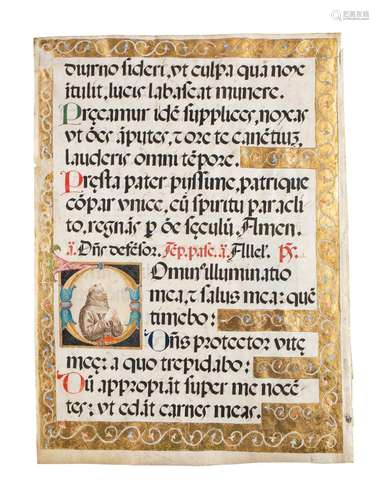 diurno sideri, vt culpa qua nox
itulit, lucis labascat munere.
Precamur idẽ supplices, noxas
vt oẽs ãputes, t ore te canẽtiuʒ,
lauderis omni tẽpore.
Presta pater pyssime, patrique
cõpar vnice, cũ spiritu paracli
to, regnãs ꝑ oẽ seculũ. Amen.
ã. Dñs defẽsor. Tẽp. pasc. ã. Allel. ps.
Dominꝰ illuminatio
mea, t salus mea: quẽ
timebo:
Dñs protector vite
mee: a quo trepidabo:
Dũ appropiãt super me nocẽ
tes: vt edãt carnes meas.